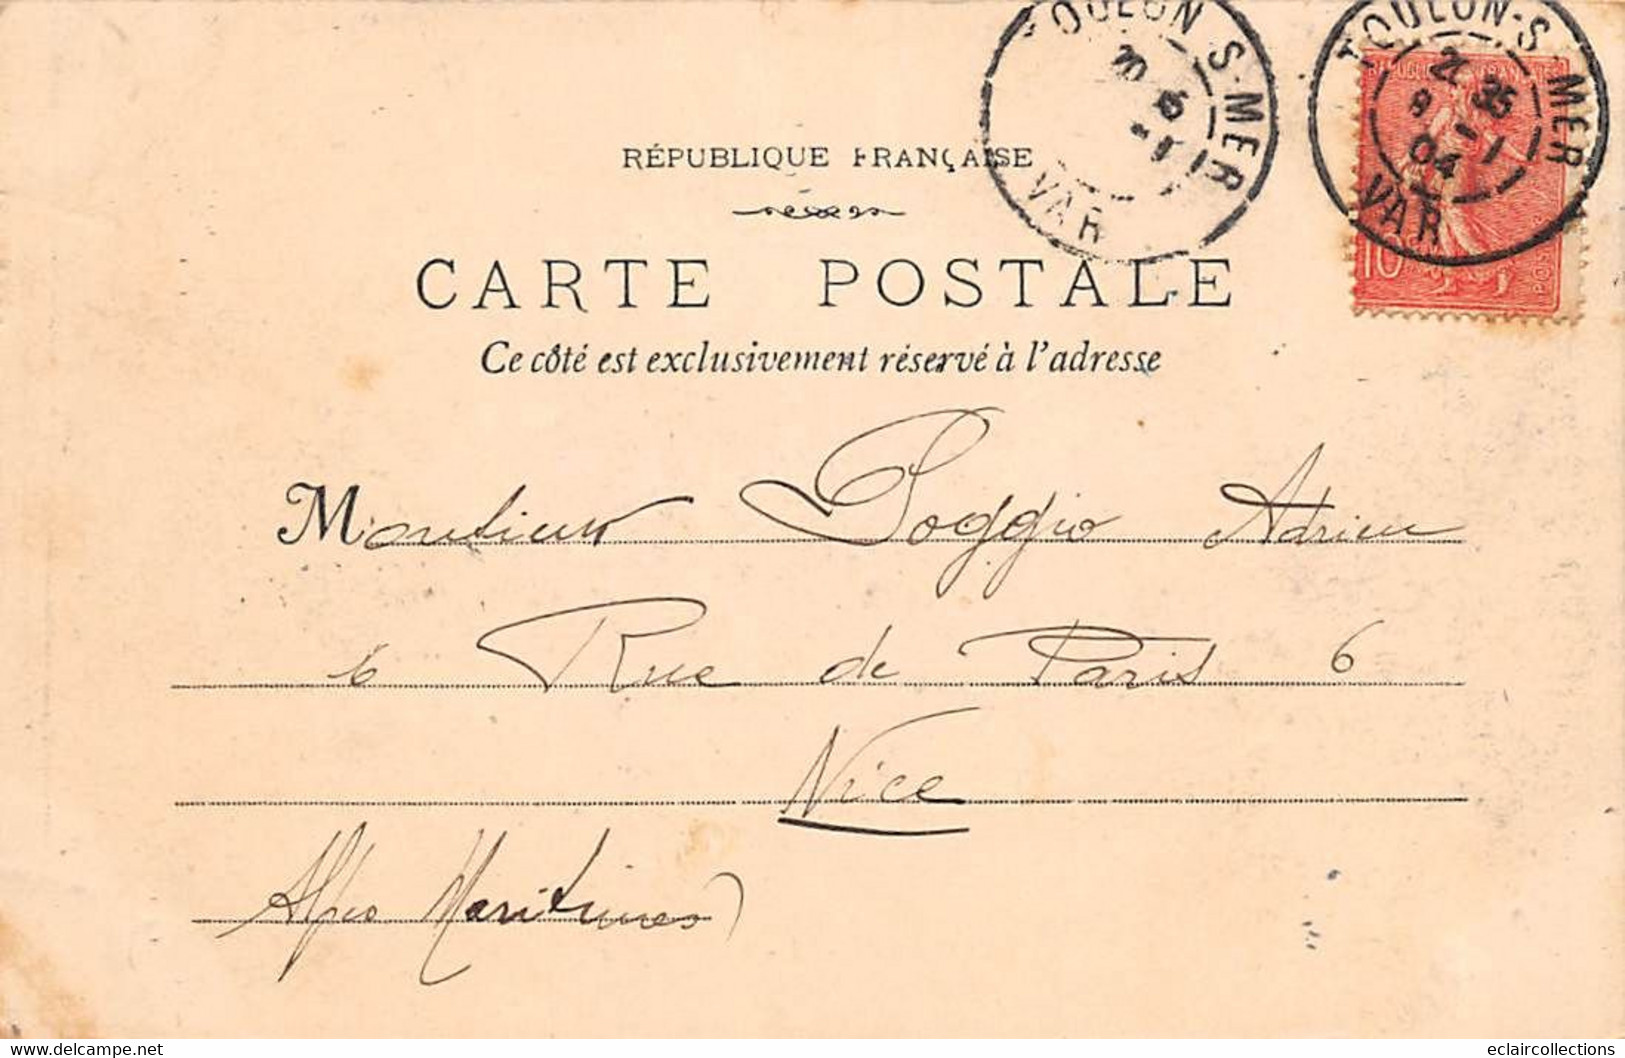 TOULON-S-MER
VAR
TOULON-S-MER
21 35
8 - 1
04
VAR
RÉPUBLIQUE FRANÇAISE
10
RÉPUBLIQUE FRANÇAISE
CARTE POSTALE
Ce côté est exclusivement réservé à l'adresse
Monsieur Poggio Adrien
6 Rue de Paris 6
Nice
Alpes Maritimes
eclaircollections